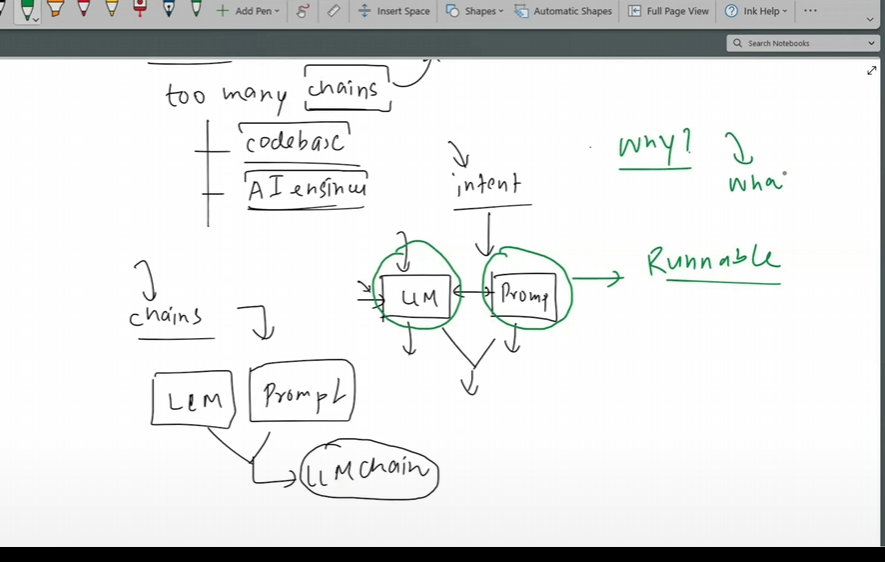 Add Pen
Insert Space
Shapes
Automatic Shapes
Full Page View
Ink Help
Search Notebooks
too many chains
codebase
AI engineer
intent
Why?
wha
LLM
Promp
Runnable
chains
LLM
Prompt
LLMChain